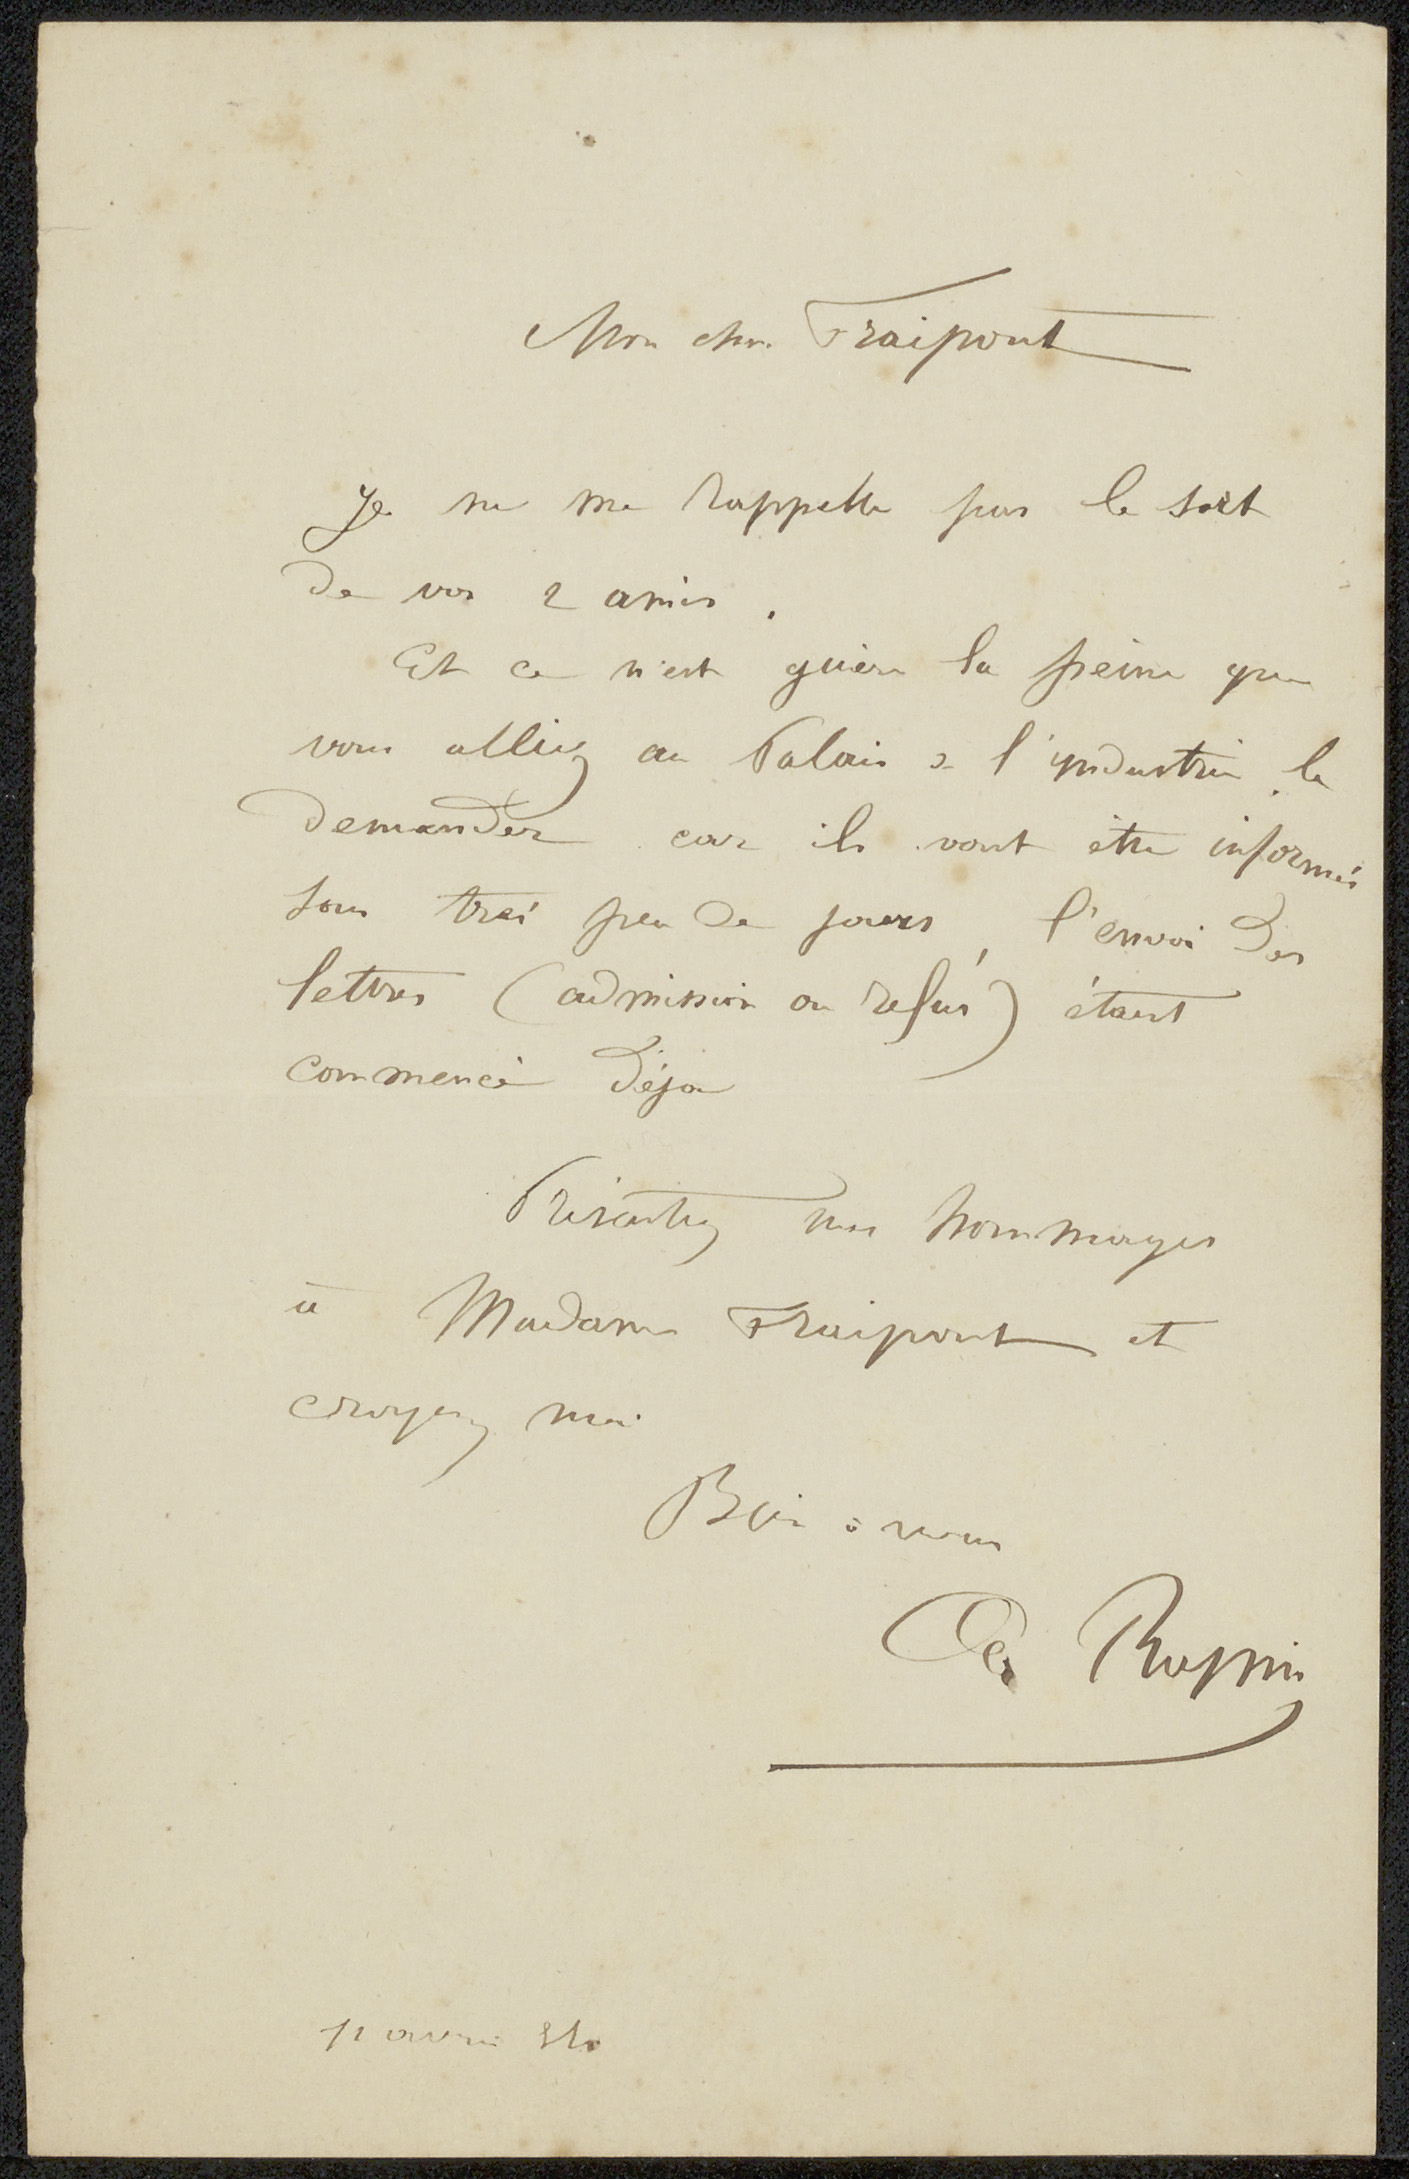 Mon cher Fraipont
Je ne me rappelle pas le sort
de vos 2 amis.
Et ce n'est guère la peine que
vous alliez au Palais de l'industrie le
demander car ils vont être informés
sous très peu de jours, l'envoi des
lettres (admission ou refus) étant
commencé déjà
Présentez mes hommages
à Madame Fraipont et
croyez moi
Bien à vous
avril